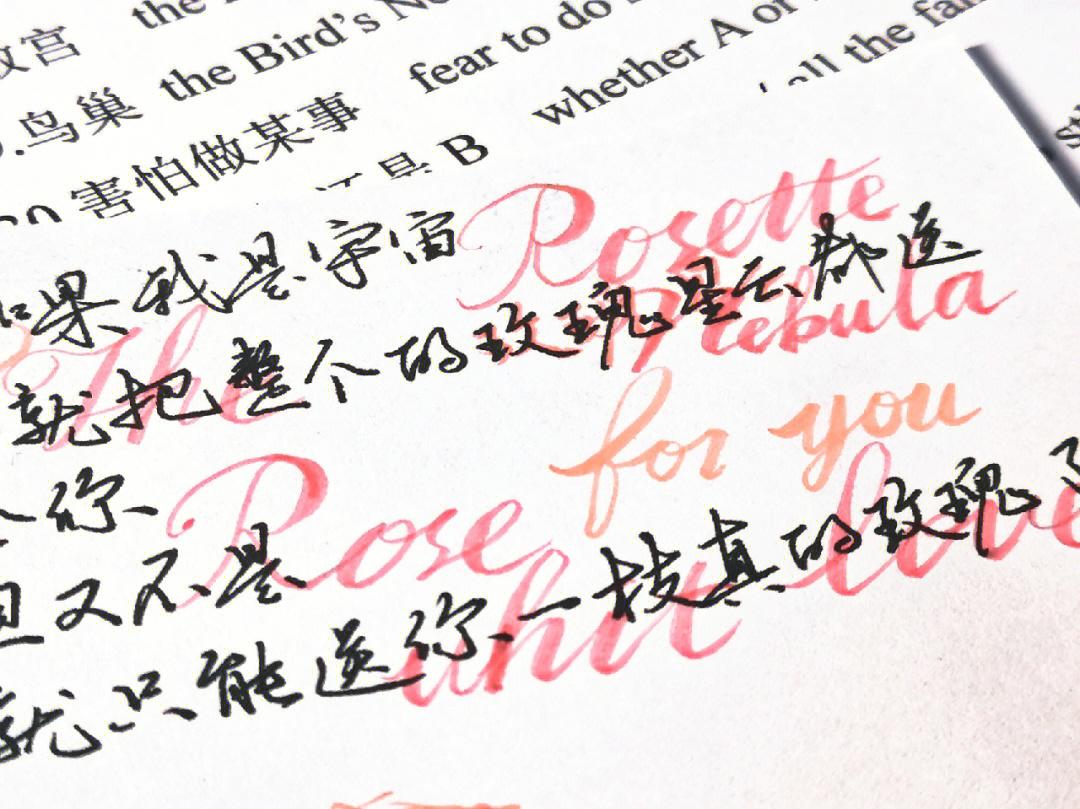 故宫 the
鸟巢 the Bird's
害怕做某事 fear to do
是 B whether A or
all the
如果我是宇宙
Rosette
The
就把整个的玫瑰星云都送
Nebula
给你
for you
但又不是
Rose
就只能送你一枝真的玫瑰了
whit love